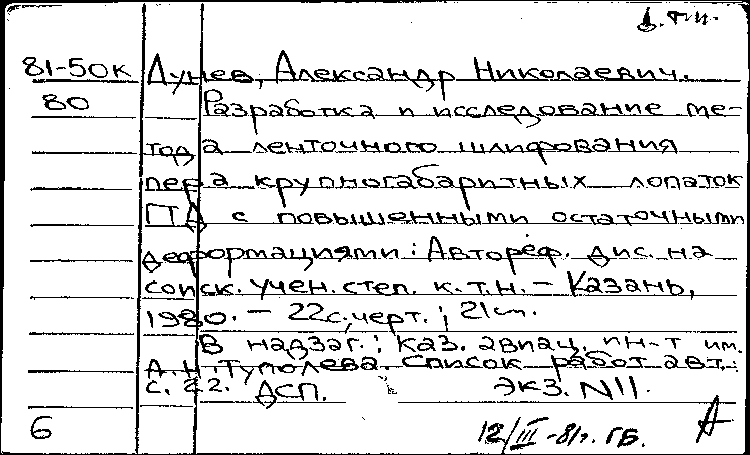 81-50к Лунев, Александр Николаевич.
80 Разработка и исследование ме-
тода ленточного шлифования
пера крупногабаритных лопаток
ГТД с повышенными остаточными
деформациями: Автореф. дис. на
соиск. учен. степ. к.т.н. - Казань,
1980. - 22с.,черт.; 21см.
В надзаг.: Каз. авиац. ин-т им.
А.Н.Туполева. Список работ авт.:
с. 22. ДСП. экз. N11.
6 12/III-81г. ГБ. А